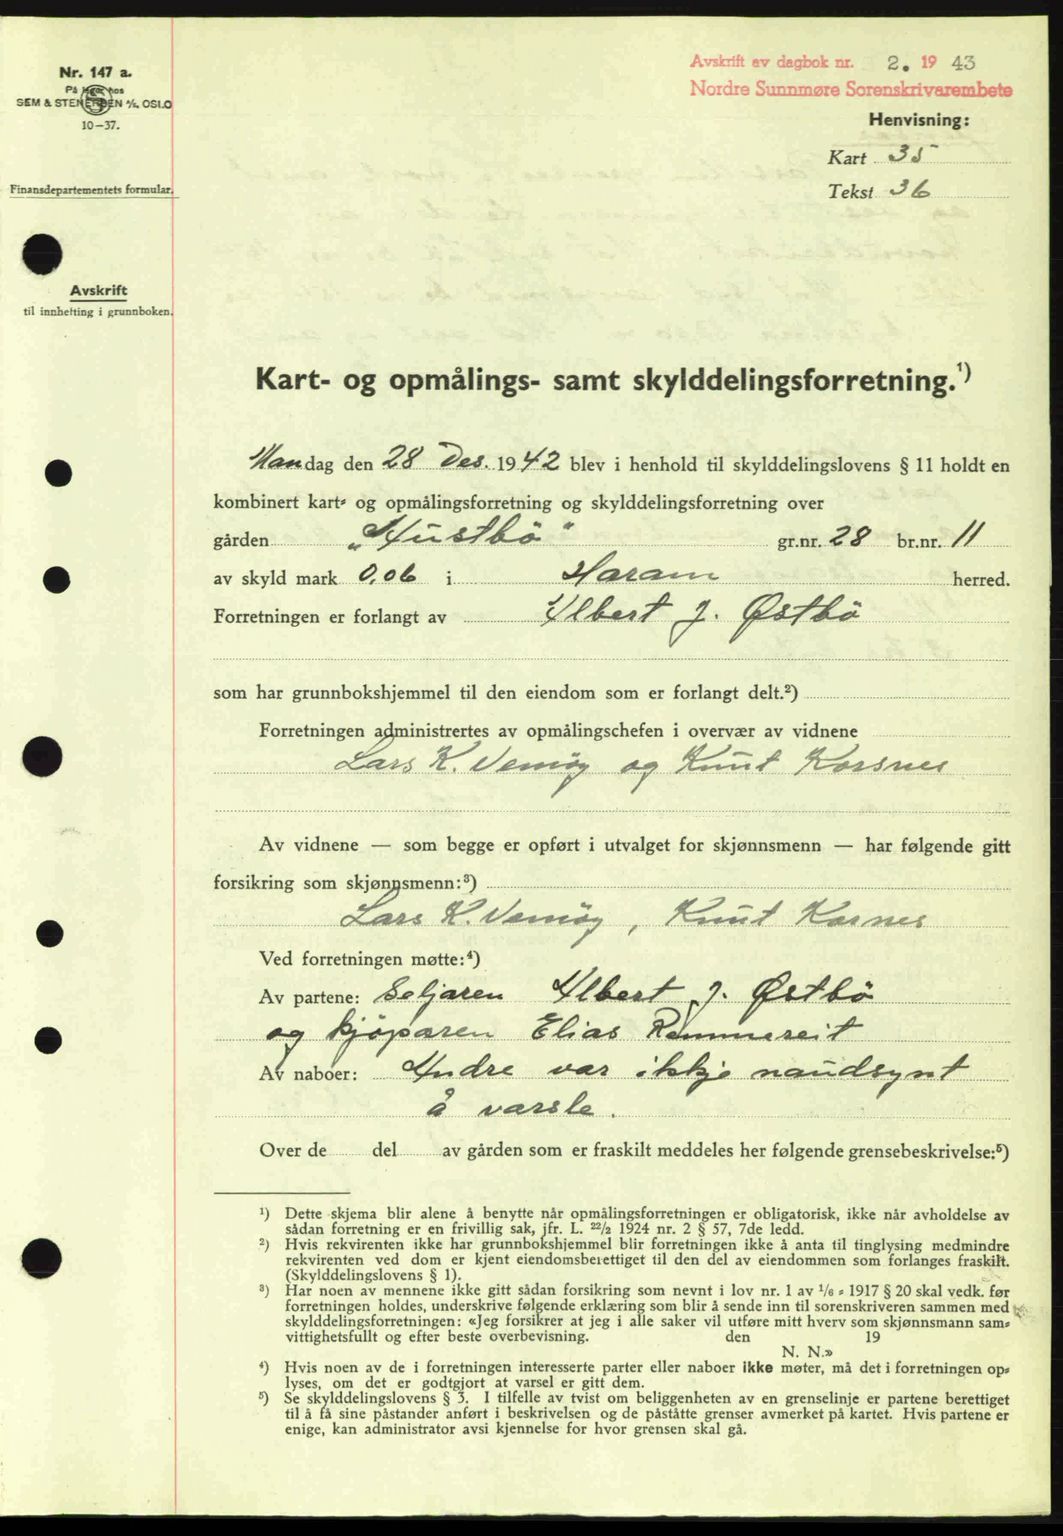 Nr. 147 a.
På lager hos
SEM & STENERSEN A/S. OSLO
10-37.
Finansdepartementets formular.
Avskrift
til innhefting i grunnboken.
Avskrift av dagbok nr. 2. 19 43
Nordre Sunnmøre Sorenskrivarembete
Henvisning:
Kart 35
Tekst 36
Kart- og opmålings- samt skylddelingsforretning.¹)
Mandag den 28 Des. 1942 blev i henhold til skylddelingslovens § 11 holdt en
kombinert kart- og opmålingsforretning og skylddelingsforretning over
gården „Austbö" gr.nr. 28 br.nr. 11
av skyld mark 0,06 i Haram herred.
Forretningen er forlangt av Albert J. Østbö
som har grunnbokshjemmel til den eiendom som er forlangt delt.²)
Forretningen administrertes av opmålingschefen i overvær av vidnene
Lars K. Vemöy og Knut Korsnes
Av vidnene — som begge er opført i utvalget for skjønnsmenn — har følgende gitt
forsikring som skjønnsmenn:³)
Lars K. Vemöy, Knut Kornes
Ved forretningen møtte:⁴)
Av partene: Seljaren Albert J. Østbö
og kjöparen Elias Remmereit
Av naboer: Andre var ikkje naudsynt
å varsle.
Over de del av gården som er fraskilt meddeles her følgende grensebeskrivelse:⁵)
¹) Dette skjema blir alene å benytte når opmålingsforretningen er obligatorisk, ikke når avholdelse av
sådan forretning er en frivillig sak, jfr. L. ²²/₂ 1924 nr. 2 § 57, 7de ledd.
²) Hvis rekvirenten ikke har grunnbokshjemmel blir forretningen ikke å anta til tinglysing medmindre
rekvirenten ved dom er kjent eiendomsberettiget til den del av eiendommen som forlanges fraskilt.
(Skylddelingslovens § 1).
³) Har noen av mennene ikke gitt sådan forsikring som nevnt i lov nr. 1 av ¹/₆ - 1917 § 20 skal vedk. før
forretningen holdes, underskrive følgende erklæring som blir å sende inn til sorenskriveren sammen med
skylddelingsforretningen: «Jeg forsikrer at jeg i alle saker vil utføre mitt hverv som skjønnsmann sam-
vittighetsfullt og efter beste overbevisning. den 19
N. N.»
⁴) Hvis noen av de i forretningen interesserte parter eller naboer ikke møter, må det i forretningen op-
lyses, om det er godtgjort at varsel er gitt dem.
⁵) Se skylddelingslovens § 3. I tilfelle av tvist om beliggenheten av en grenselinje er partene berettiget
til å få sine påstander anført i beskrivelsen og de påståtte grenser avmerket på kartet. Hvis partene er
enige, kan administrator avsi kjennelse for hvor grensen skal gå.